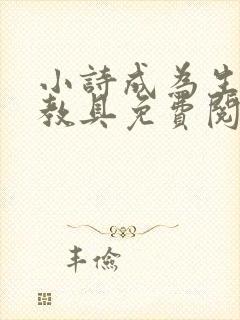 小詩成為生
教具免費閱
丰儉